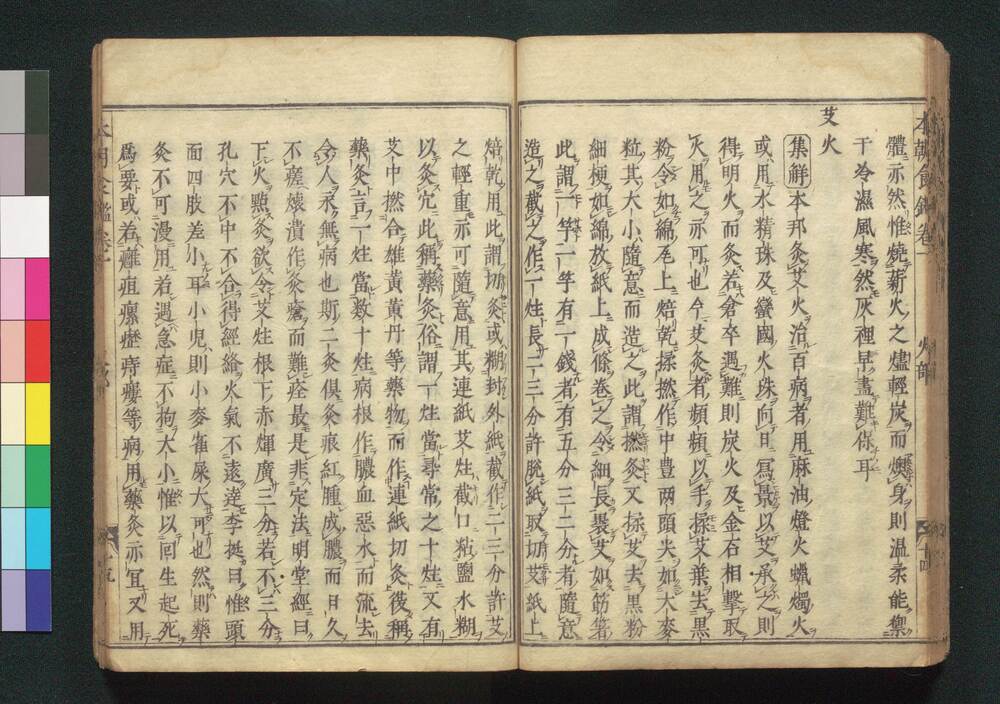 體亦然惟燒薪火之燼輕炭而燠身則温柔能禦
于冷濕風寒然灰裡早盡難保耳
艾火
集解本邦灸艾火治百病者用麻油燈火蠟燭火
或用水精珠及蠻國火珠向日冩景以艾承之則
得明火而灸若倉卒遇難則炭火及金石相擊取
火用之亦可也今艾灸者頻頻以手揉艾葉去黒
粉令如綿毛上焙乾揉撚作中豊两頭尖如大麥
粒其大小隨意而造之此謂撚灸又揉艾去黒粉
細梗如綿放紙上成條卷之令細長褁艾如筋箸
此謂二竿二竿有一錢者有五分三二分者隨意
造之截之作一炷長二三分許脱紙取切艾紙上
焙乾用此謂切灸或糊封外紙截作二三分許艾
之輕重亦可隨意用其連紙艾炷截口粘鹽水糊
以灸宂此稱藥灸俗謂一炷當尋常之十炷又有
艾中撚合雄黄黄丹等藥物而作連紙切灸後稱
藥灸言一炷當数十炷病根作膿血惡水而流去
令人永無病也斯二灸俱灸痕紅腫成膿而日久
不瘥壊潰作灸瘡而難痊最是非定法明堂經曰
下火點灸欲令艾炷根下赤煇廣三分若不三分
孔穴不中不合得經絡火氣不逺達李挺曰惟頭
面四肢差小耳小児則小麥雀屎大可也然則藥
灸不可漫用若遇急症不拘大小惟以回生起死
爲要或若癰疽瘰癧痔癭等病用藥灸亦宜又用
本朝食鑑卷一
火部
十四